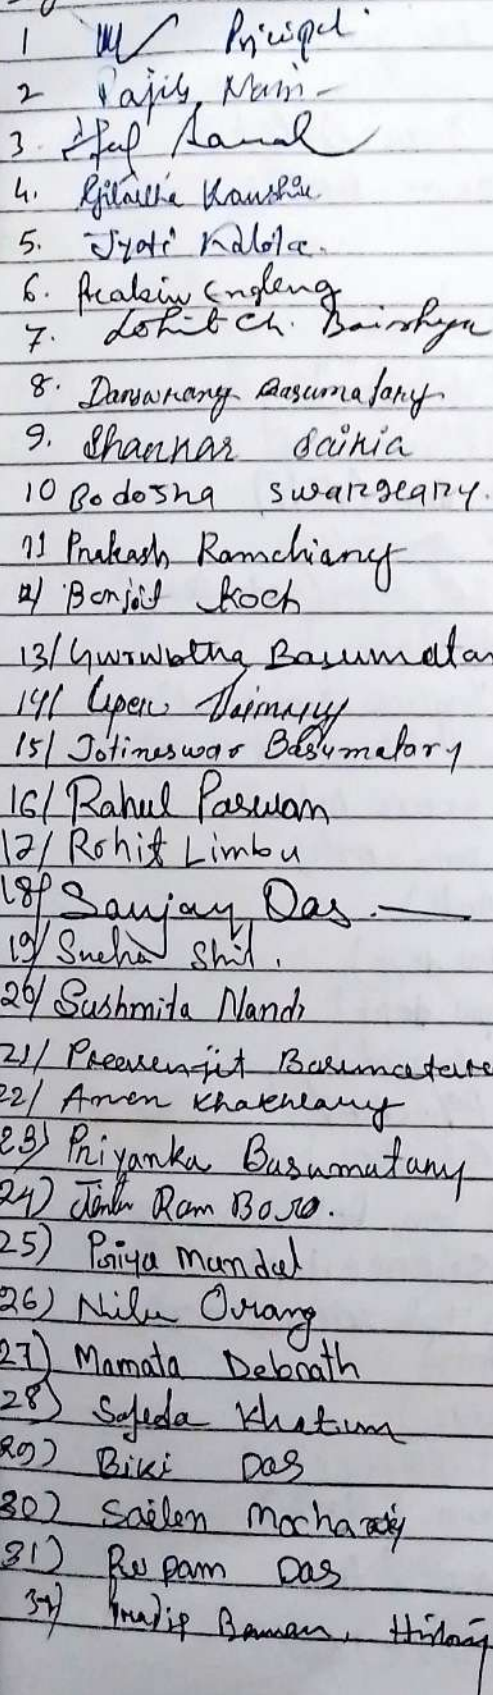 1 Principal
2
3.
4. Kaushik
5. Jyoti Kalota.
6. Engleng
7. Lohit Ch. Baishya
8. Danswrang Basumatary
9. Shankar Saikia
10 Bodosha Swargeary.
11 Prakash Ramchiary
12/ Bonjit Koch
13/ Gwrwbtha Basumatar
14/ Upen Daimary
15/ Jotineswar Basumatary
16/ Rahul Paswan
17/ Rohit Limbu
18/ Sanjay Das.
19/ Sneha Shil.
20/ Sushmita Nandi
21/ Basumatary
22/ Amen Khakhlary
23) Priyanka Basumatary
24) Ram Boro.
25) Poriya Mandal
26) Nilu Orang
27) Mamata Debnath
28) Safeda Khatun
29) Biki Das
30) Sailen Mochahary
31) Rupam Das
32) Pradip Barman, History